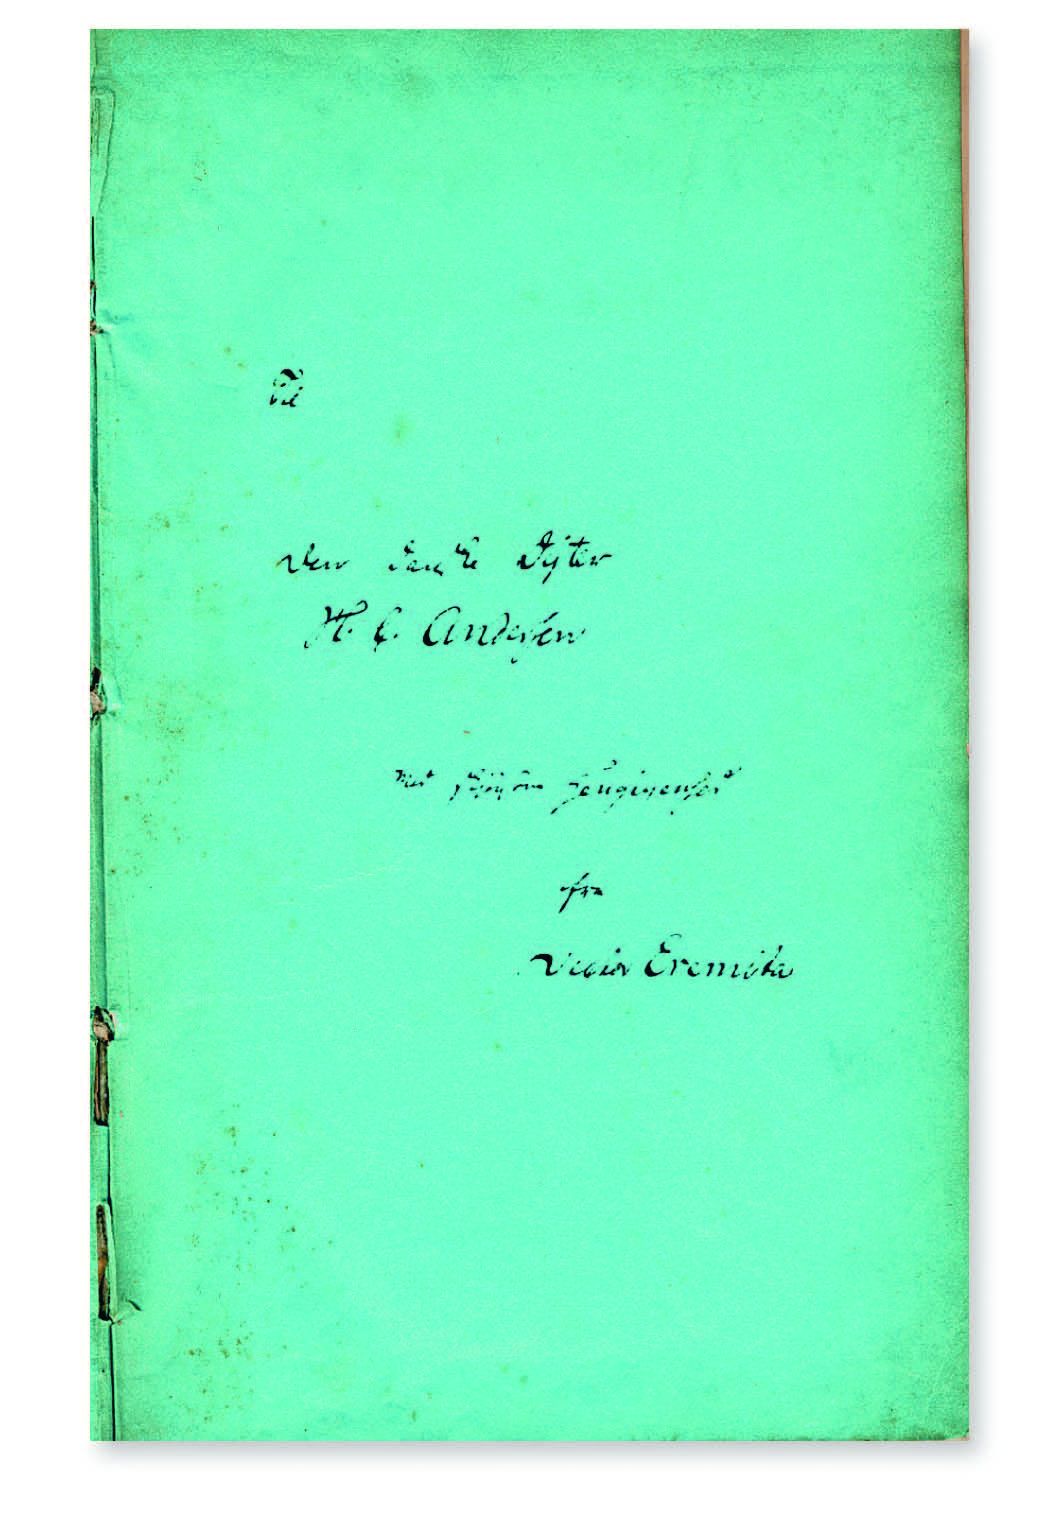 Til
Den danske Digter
H. C. Andersen
med skyldig Hengivenhed
fra
Victor Eremita